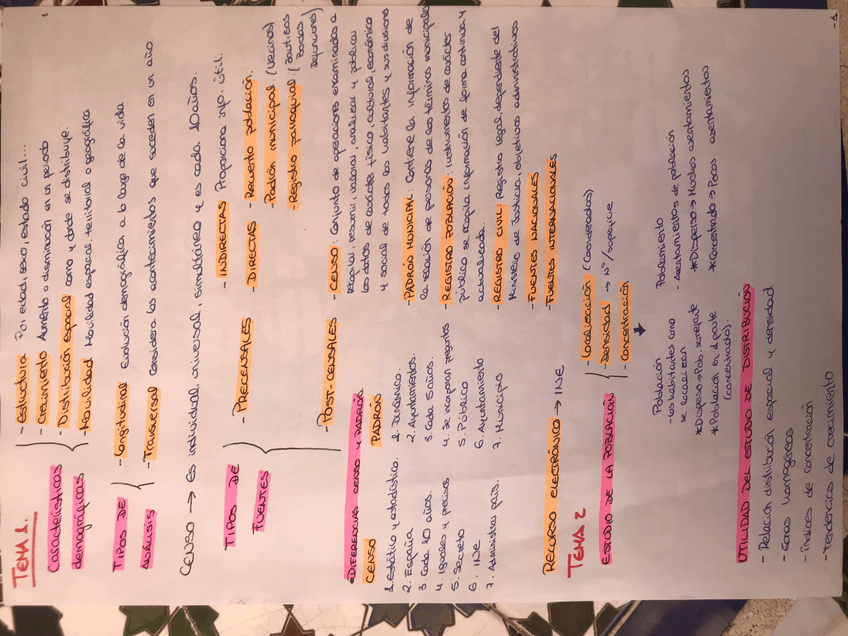 TEMA 1.
Características demográficas
- Estructura Por edad, sexo, estado civil...
- Crecimiento Aumento o disminución en un periodo
- Distribución espacial como y donde se distribuye.
- Movilidad Movilidad espacial, territorial o geográfica
TIPOS DE ANÁLISIS
- Longitudinal Evolución demográfica a lo largo de la vida
- Transversal Considera los acontecimientos que suceden en un año
CENSO → Es individual, universal, simultáneo y es cada 10 años.
TIPOS DE FUENTES
- PRECENSALES
- INDIRECTAS Proporciona info. útil.
- DIRECTAS
- Recuento población.
- Padrón municipal (Vecinos)
- Registro parroquial (Bautizos Bodas Defunciones)
- POST-CENSALES
- CENSO: Conjunto de operaciones encaminadas a
recopilar, resumir, valorar, analizar y publicar
los datos de carácter físico, cultural, económico
y social de todos los habitantes y sus divisiones
- PADRÓN MUNICIPAL: Contiene la información de
la relación de personas de los términos municipales
- REGISTRO POBLACIÓN: instrumentos de carácter
público se recopila información de forma continua y
actualizada.
- REGISTRO CIVIL: Registro legal dependiente del
Ministerio de Justicia, objetivos administrativos
- FUENTES NACIONALES
- FUENTES INTERNACIONALES
DIFERENCIAS CENSO Y PADRÓN
CENSO
1. Estático y estadístico.
2. España
3. Cada 10 años.
4. Iguales y precisos
5. Secreto
6. INE
7. Administra país.
PADRÓN
1. Dinámico.
2. Ayuntamientos.
3. Cada 5 años.
4. Se incorporan preguntas
5. Público
6. Ayuntamiento
7. Municipio
RECURSO ELECTRÓNICO → INE
TEMA 2
ESTUDIO DE LA POBLACIÓN
- Localización (Coordenadas)
- Densidad → Nº/superficie
- Concentración
Población
- Los habitantes como
se localizan
* Disperso → Pob.
* Población en 1 parte
(concentrado).
Poblamiento
- Asentamientos de población
* Disperso → Muchos asentamientos
* Concentrado → Pocos asentamientos
UTILIDAD DEL ESTUDIO DE DISTRIBUCIÓN
- Relación distribución espacial y densidad
- Zonas homogéneas
- Índices de concentración
- Tendencias de crecimiento